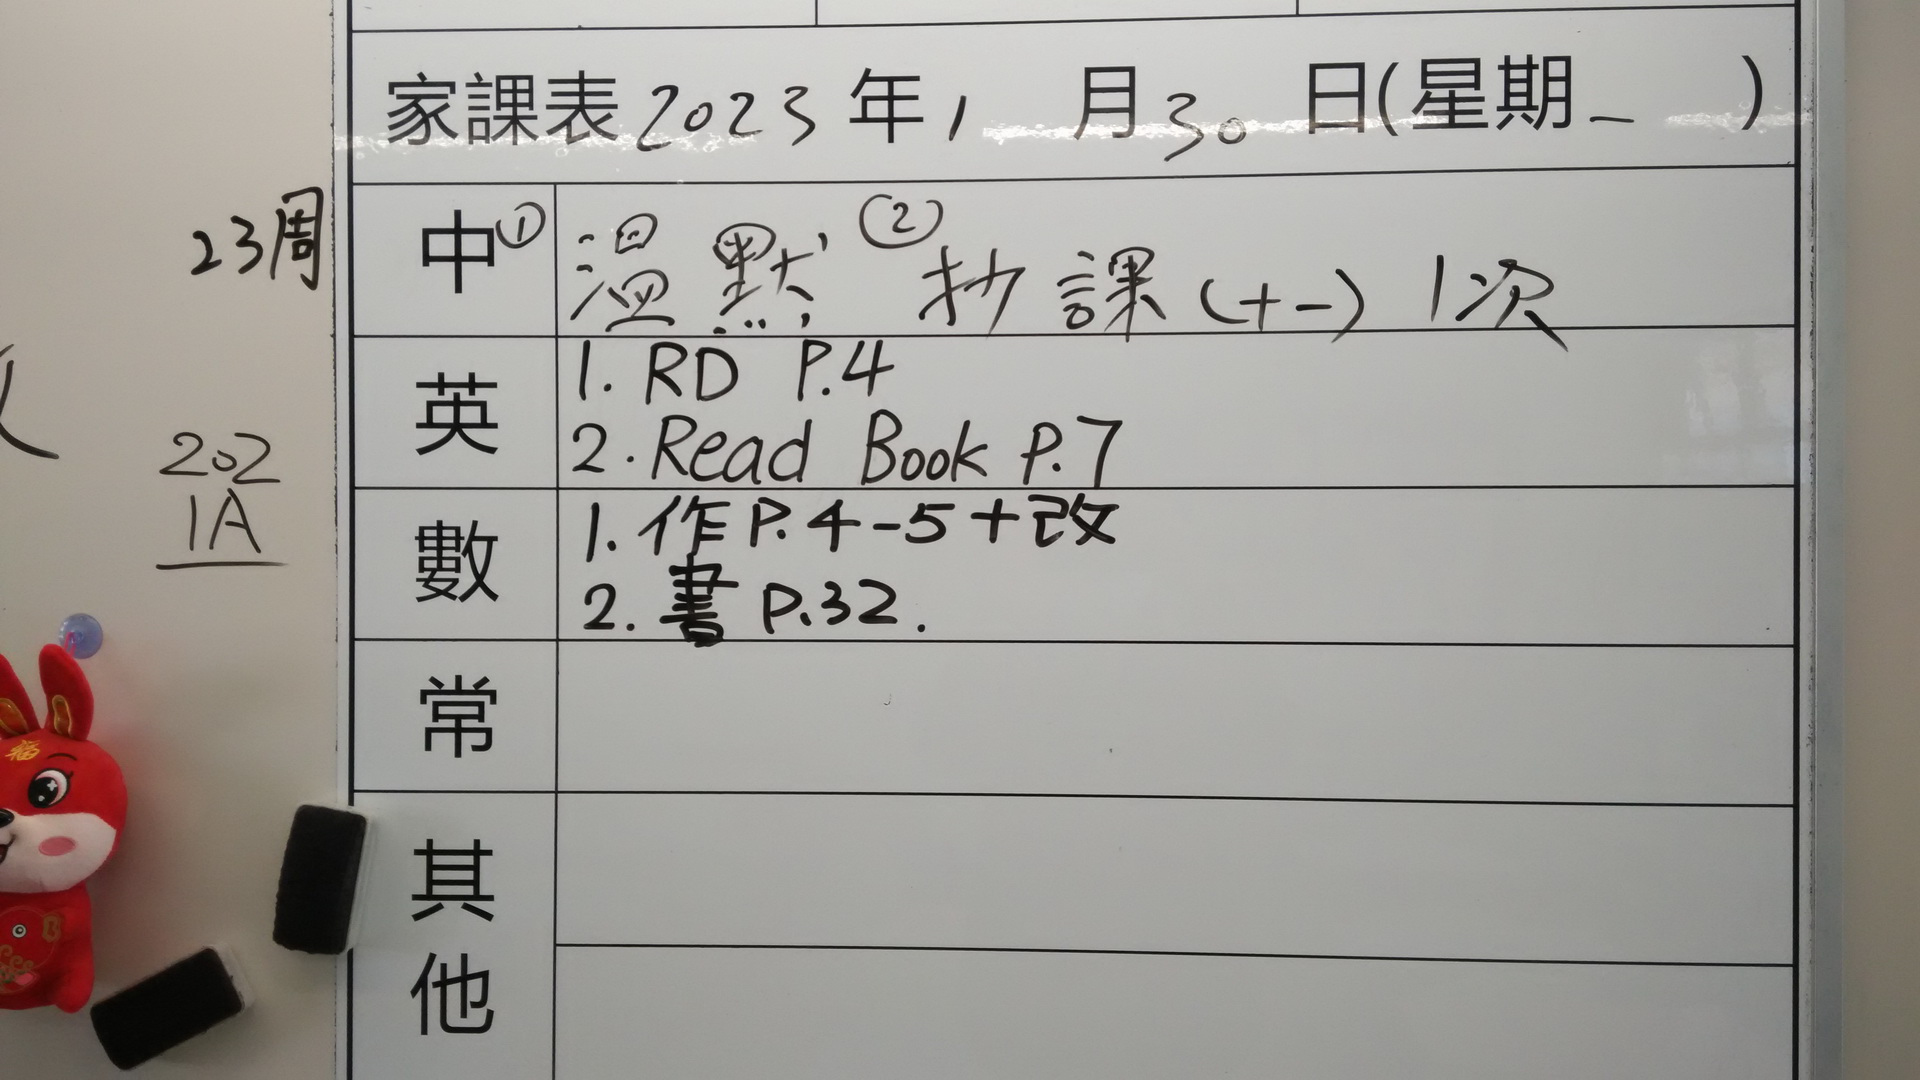 家課表2023年1月30日(星期一)
23周
中 ①溫默 ②抄課(十一)1次
英 1. RD P.4
2. Read Book P.7
202
1A
數 1. 作P.4-5+改
2. 書 P.32.
常
其他
福